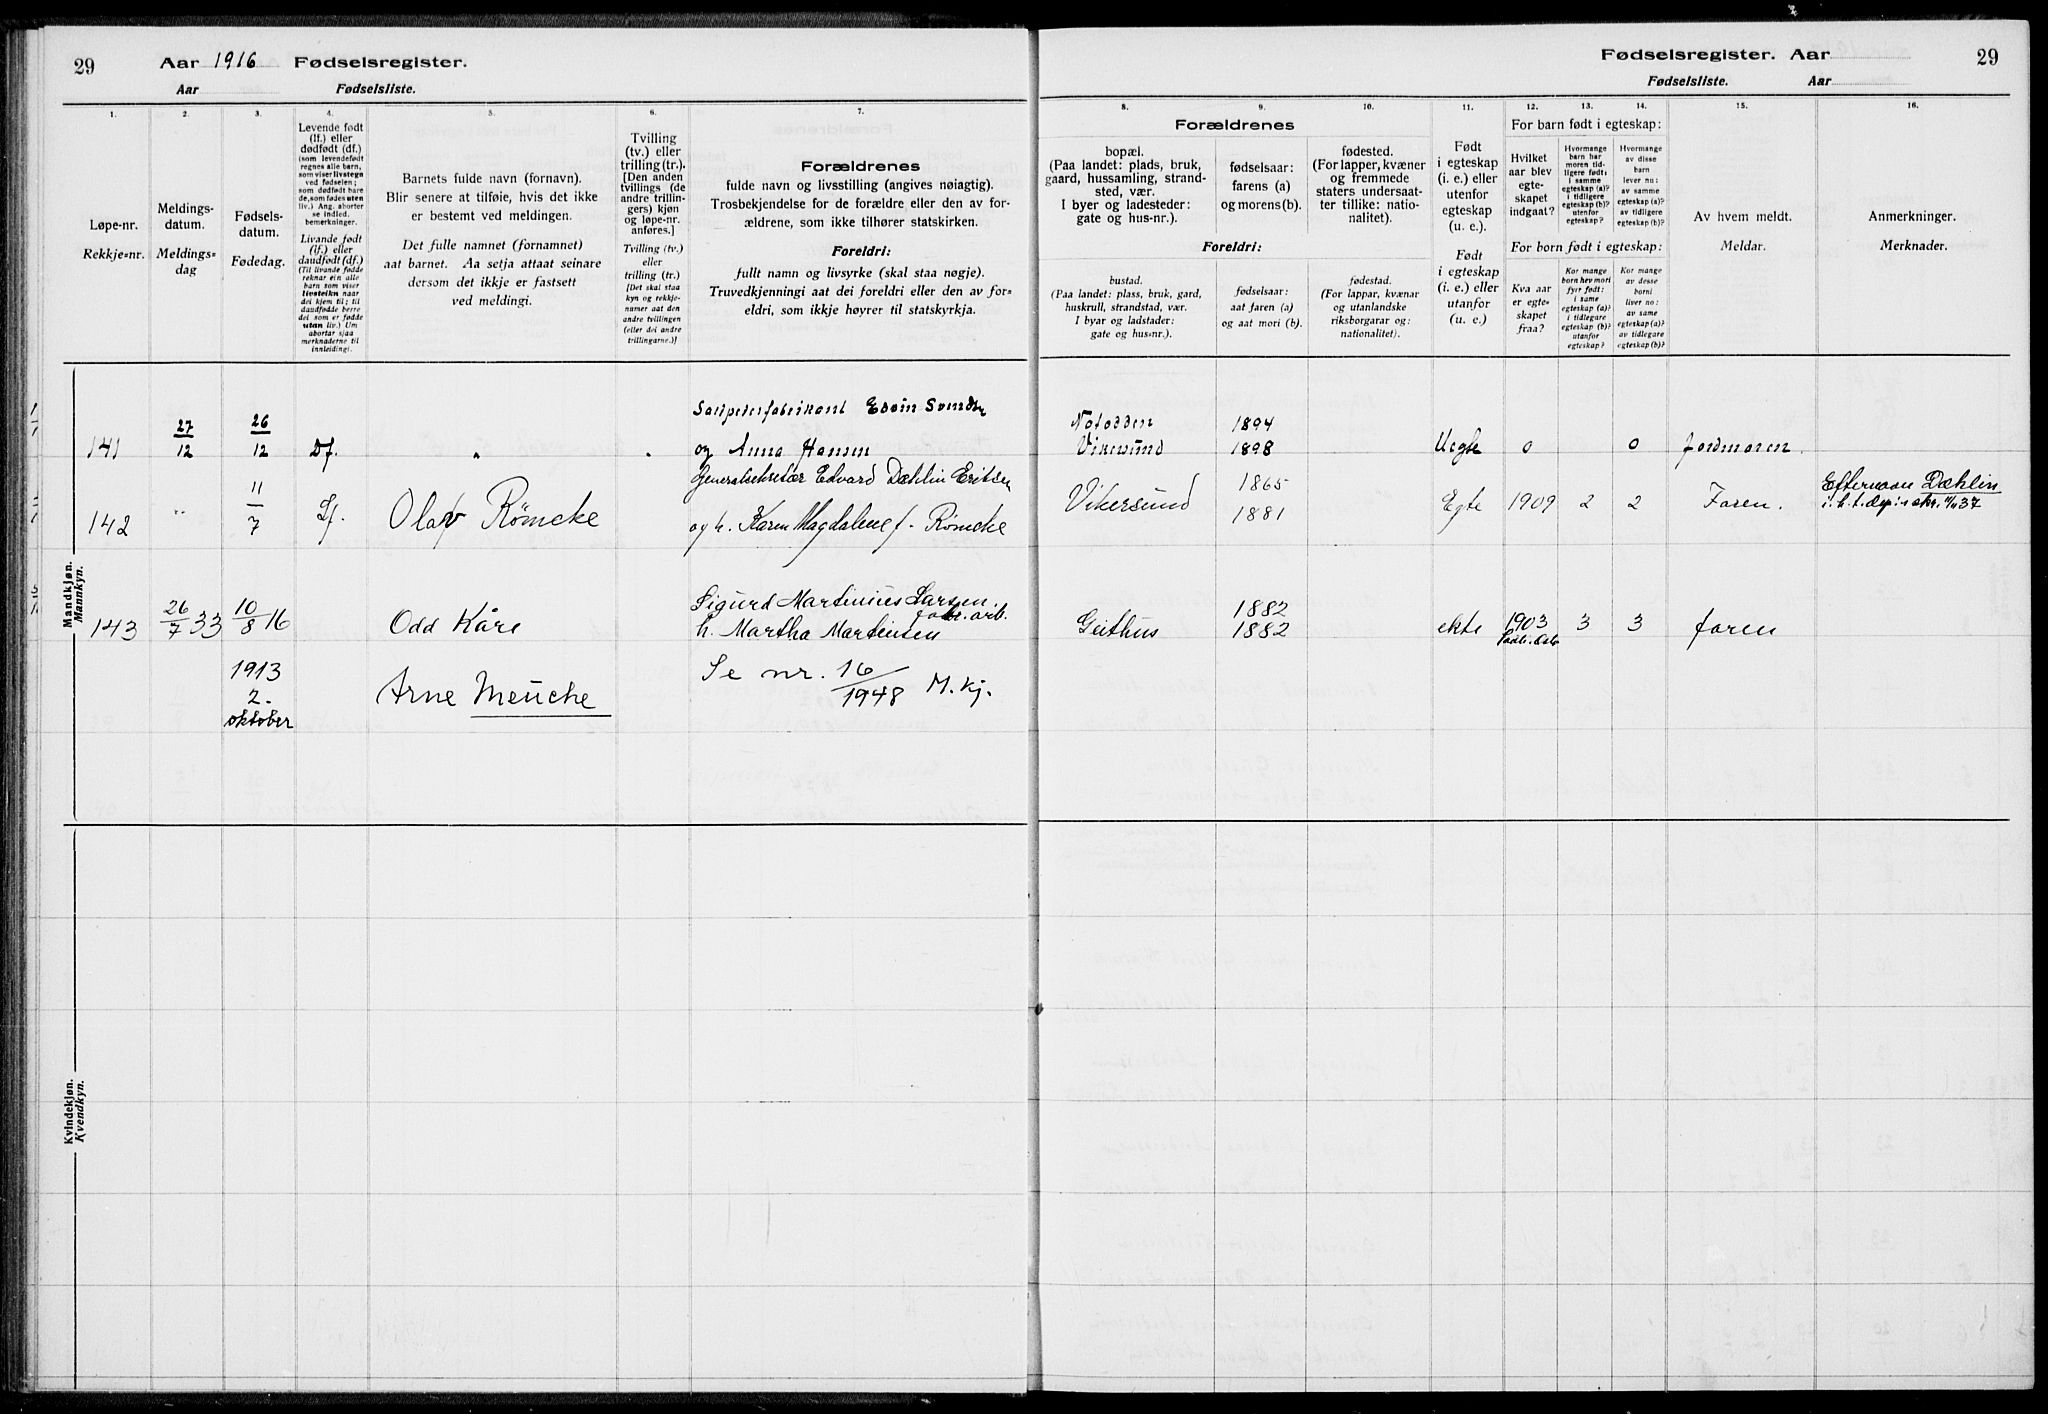 29
Aar 1916 Fødselsregister.
Aar Fødselsliste.
Fødselsregister. Aar
29
Fødselsliste. Aar
1. 2. 3. 4. 5. 6. 7.
Løpe-nr.
Rekkje=nr.
Meldings-
datum.
Meldings=
dag
Fødsels-
datum.
Fødedag.
Levende født
(lf.) eller
dødfødt (df.)
(som levendefødt
regnes alle barn,
som viser livstegn
ved fødselen;
som dødfødt bare
de, som fødes uten
liv.) Ang. aborter
se indled.
bemerkninger.
Livande født
(lf.) eller
daudfødt (df.)
(Til livande fødde
reknar ein alle
barn som viser
livsteikn naar
dei kjem til; til
daudfødde berre
dei som er fødde
utan liv.) Um
abortar sjaa
merknaderne til
innleidingi.
Barnets fulde navn (fornavn).
Blir senere at tilføie, hvis det ikke
er bestemt ved meldingen.
Det fulle namnet (fornamnet)
aat barnet. Aa setja attaat seinare
dersom det ikkje er fastsett
ved meldingi.
Tvilling
(tv.) eller
trilling (tr.).
[Den anden
tvillings (de
andre trillin-
gers) kjøn
og løpe-nr.
anføres.]
Tvilling (tv.)
eller
trilling (tr.)
[Det skal staa
kyn og rekkje-
numer aat den
andre tvillingen
(eller dei andre
trillingarne.)]
Forældrenes
fulde navn og livsstilling (angives nøiagtig).
Trosbekjendelse for de forældre eller den av for-
ældrene, som ikke tilhører statskirken.
Foreldri:
fullt namn og livsyrke (skal staa nøgje).
Truvedkjenningi aat dei foreldri eller den av for=
eldri, som ikkje høyrer til statskyrkja.
8. 9. 10. 11. 12. 13. 14. 15. 16.
Forældrenes
bopæl.
(Paa landet: plads, bruk,
gaard, hussamling, strand-
sted, vær.
I byer og ladesteder:
gate og hus-nr.).
fødselsaar:
farens (a)
og morens (b).
fødested.
(For lapper, kvæner
og fremmede
staters undersaat-
ter tillike: natio-
nalitet).
Foreldri:
bustad.
(Paa landet: plass, bruk, gard,
huskrull, strandstad, vær.
I byar og ladstader:
gate og hus=nr.).
fødselsaar:
aat faren (a)
og aat mori (b).
fødestad.
(For lappar, kvænar
og utanlandske
riksborgarar og:
nationalitet).
Født
i egteskap
(i. e.) eller
utenfor
egteskap
(u. e.).
Født
i egteskap
(i. e.) eller
utanfor
egteskap
(u. e.)
For barn født i egteskap:
Hvilket
aar blev
egte-
skapet
indgaat?
Hvormange
barn har
moren tid-
ligere født:
i samme
egteskap (a)?
i tidligere
egteskap (b)?
utenfor
egteskap?
Hvormange
av disse
barn
lever nu:
av samme
egteskap (a)?
av tidligere
egteskap (b)?
For born født i egteskap:
Kva aar
er egte=
skapet
fraa?
Kor mange
born hev mori
fyrr født:
i same
egteskap (a)?
i tidlegare
egteskap (b)?
utanfor
egteskap?
Kor mange
av desse
borni
liver no:
av same
egteskap (a)?
av tidlegare
egteskap (b)?
Av hvem meldt.
Meldar.
Anmerkninger.
Merknader.
Mandkjøn.
Mannkyn.
Salpeterfabrikant Edvin Svendsen Notodden 1894
141 27/12 26/12 Df. " " og Anna Hansen Vikersund 1898 Uegte 0 0 Jordmoren.
Generalsekretær Edvard Dæhlin Eriksen 1865 Efternavn Dæhlin
142 " 11/7 Lf. Olav Rømcke og h. Karen Magdalene f. Rømcke Vikersund 1881 Egte 1909 2 2 Faren.
Sigurd Martinius Larsen. fabr. arb. 1882
143 26/7 33 10/8 16 Odd Kåre h. Martha Martinsen Geithus 1882 ekte 1903 3 3 faren
1913
2.
oktober
Arne Meucke Se nr. 16/1948 M. kj.
Kvindekjøn.
Kvendkyn.